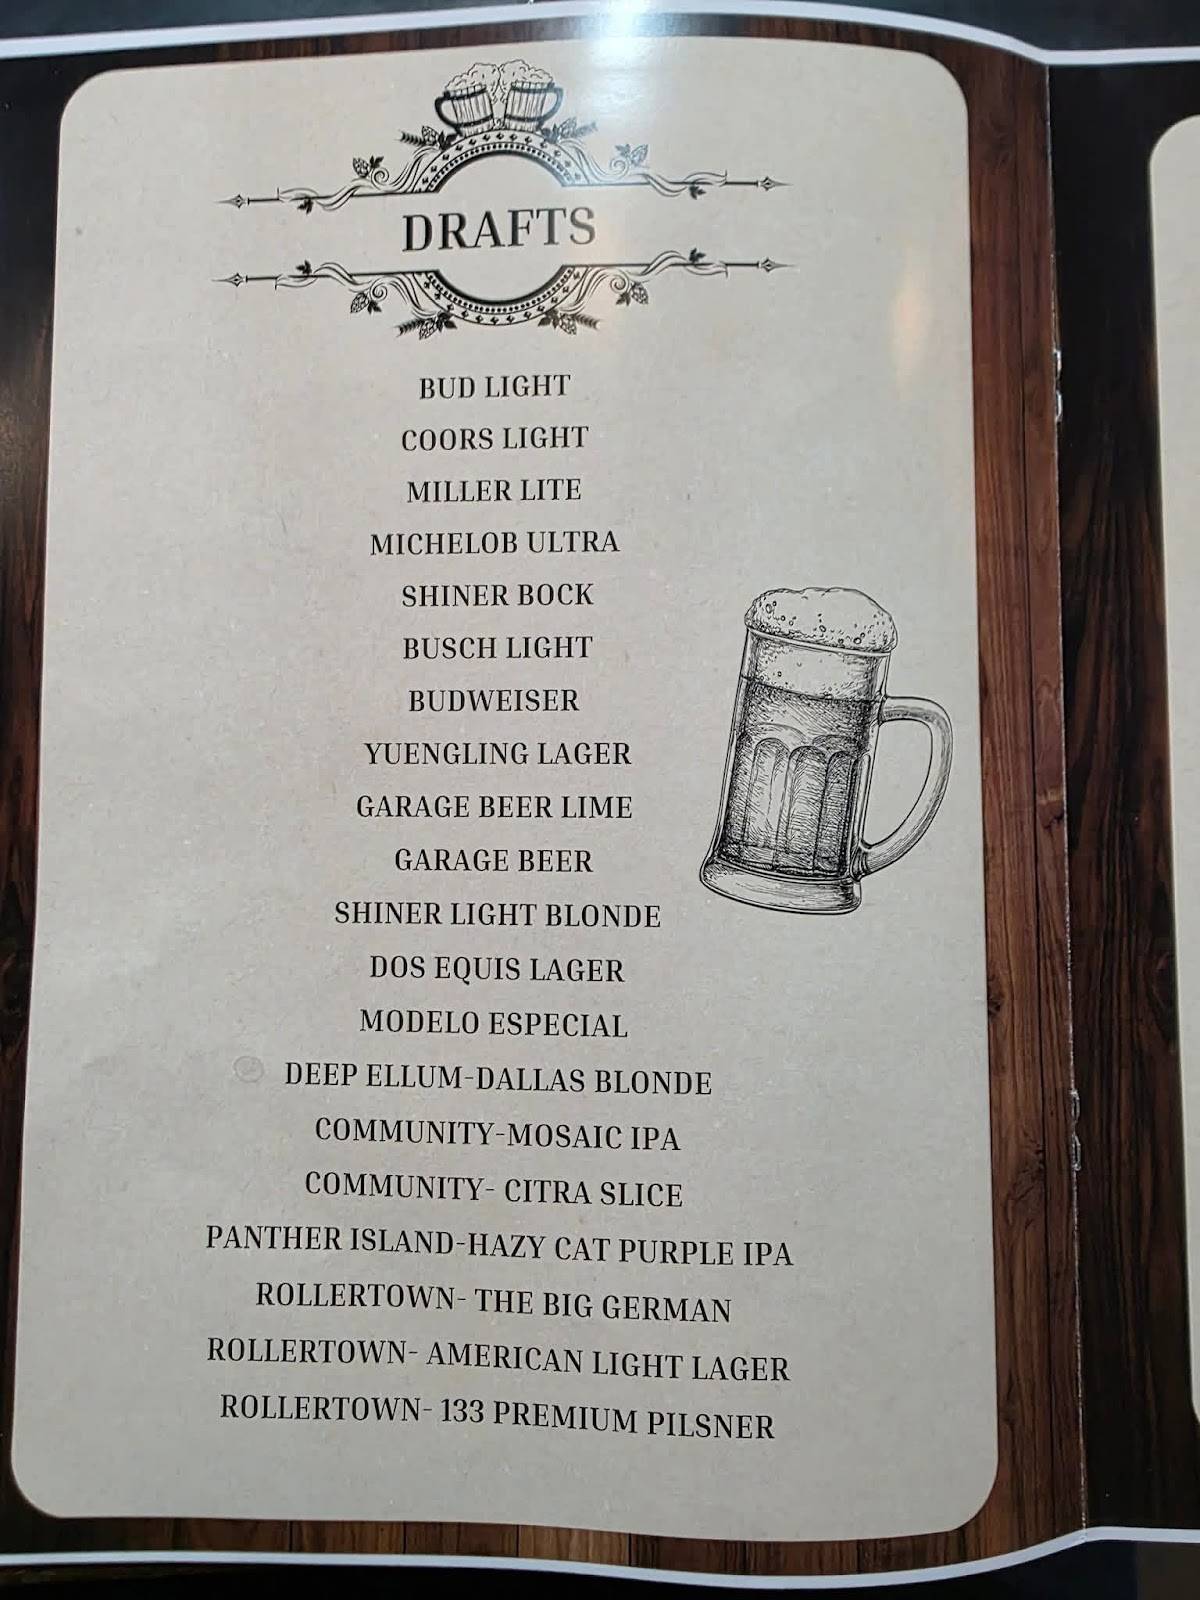 DRAFTS
BUD LIGHT
COORS LIGHT
MILLER LITE
MICHELOB ULTRA
SHINER BOCK
BUSCH LIGHT
BUDWEISER
YUENGLING LAGER
GARAGE BEER LIME
GARAGE BEER
SHINER LIGHT BLONDE
DOS EQUIS LAGER
MODELO ESPECIAL
DEEP ELLUM-DALLAS BLONDE
COMMUNITY-MOSAIC IPA
COMMUNITY- CITRA SLICE
PANTHER ISLAND-HAZY CAT PURPLE IPA
ROLLERTOWN- THE BIG GERMAN
ROLLERTOWN- AMERICAN LIGHT LAGER
ROLLERTOWN- 133 PREMIUM PILSNER